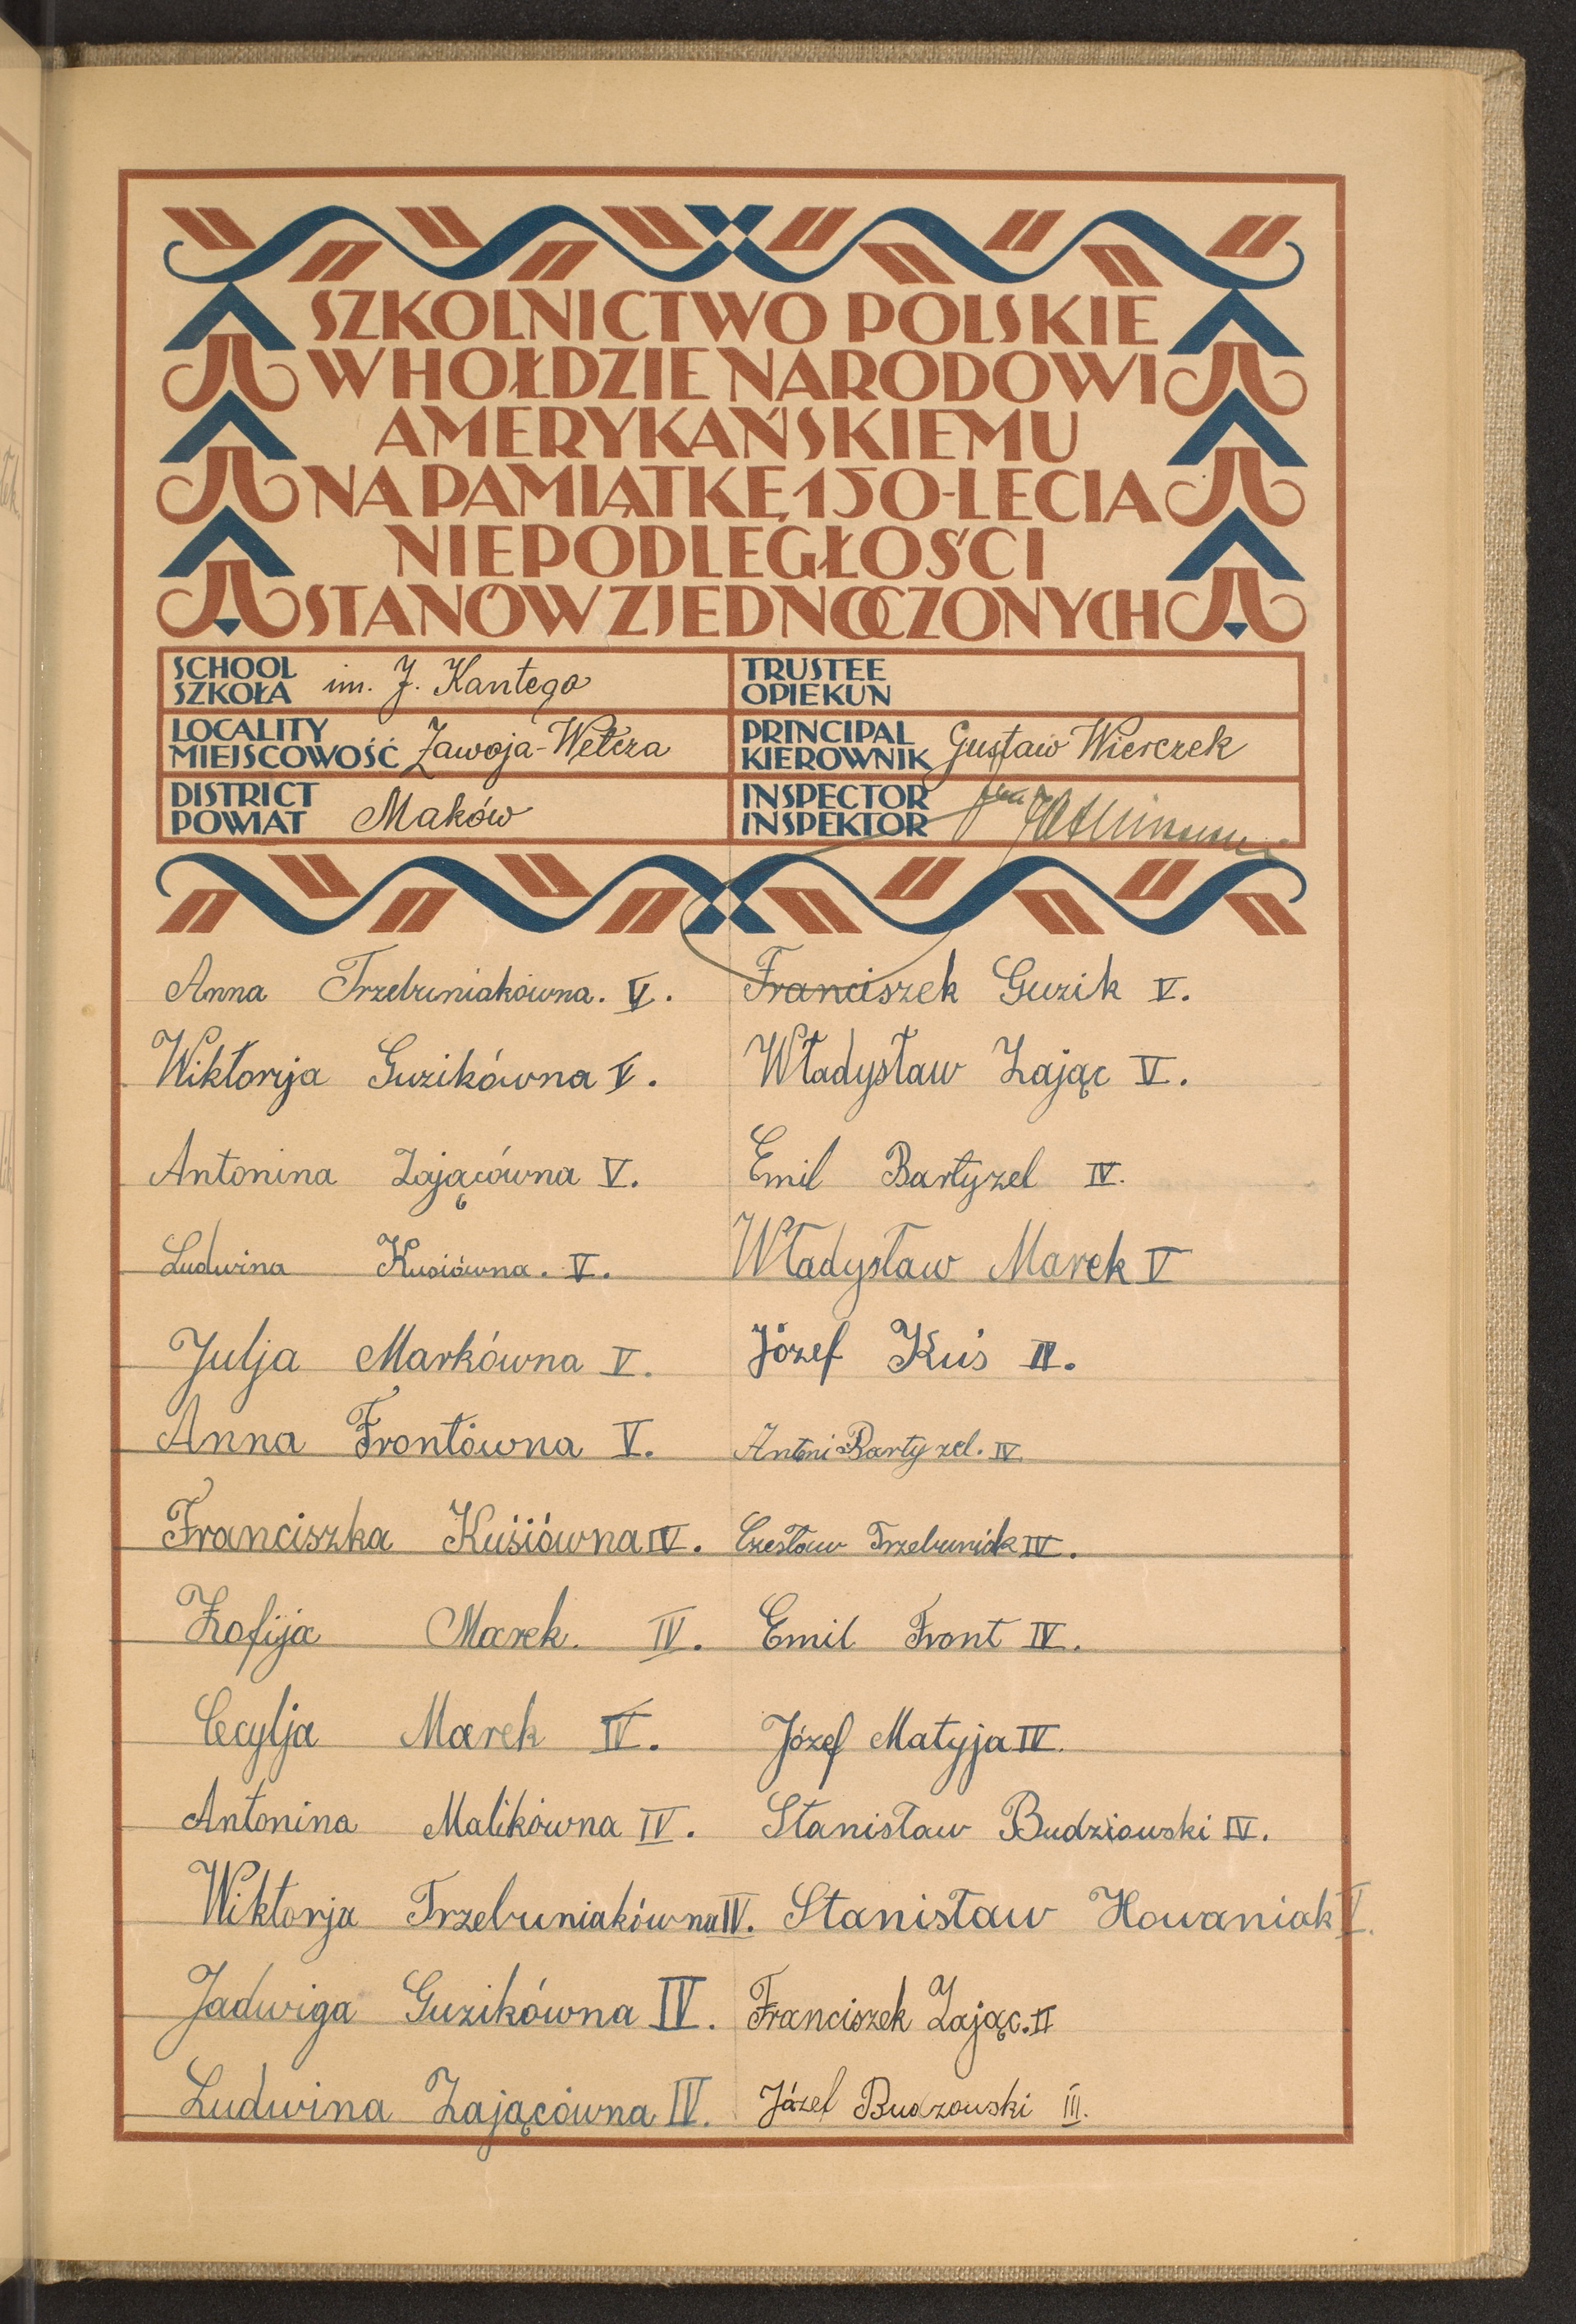 SZKOLNICTWO POLSKIE
W HOŁDZIE NARODOWI
AMERYKAŃSKIEMU
NA PAMIĄTKĘ 150-LECIA
NIEPODLEGŁOŚCI
STANÓW ZJEDNOCZONYCH
SCHOOL
SZKOŁA im. J. Kantego
TRUSTEE
OPIEKUN
LOCALITY
MIEJSCOWOŚĆ Zawoja-Wełcza
PRINCIPAL
KIEROWNIK Gustaw Wierczek
DISTRICT
POWIAT Maków
INSPECTOR
INSPEKTOR
Anna Trzebuniakówna. V. Franciszek Guzik V.
Wiktorija Guzikówna V. Władysław Zając V.
Antonina Zającówna V. Emil Bartyzel IV.
Ludwina Kusiówna. V. Władysław Marek V
Julja Markówna V. Józef Kuś IV.
Anna Frontówna V. Antoni Bartyzel. IV.
Franciszka Kuśiówna IV. Czesław Trzebuniak IV.
Zofija Marek. IV. Emil Front IV.
Cecylja Marek IV. Józef Matyja IV.
Antonina Malikówna IV. Stanisław Budziowski IV.
Wiktorja Trzebuniakówna IV. Stanisław Howaniak V.
Jadwiga Guzikówna IV. Franciszek Zając. II
Ludwina Zającówna IV. Józef Budzowski III.